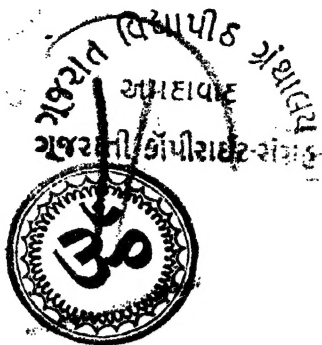 ગૂજરાત વિદ્યાપીઠ ગ્રંથાલય
અમદાવાદ
ગૂજરાતી કૉપીરાઇટ-સંગ્રહ
ૐ